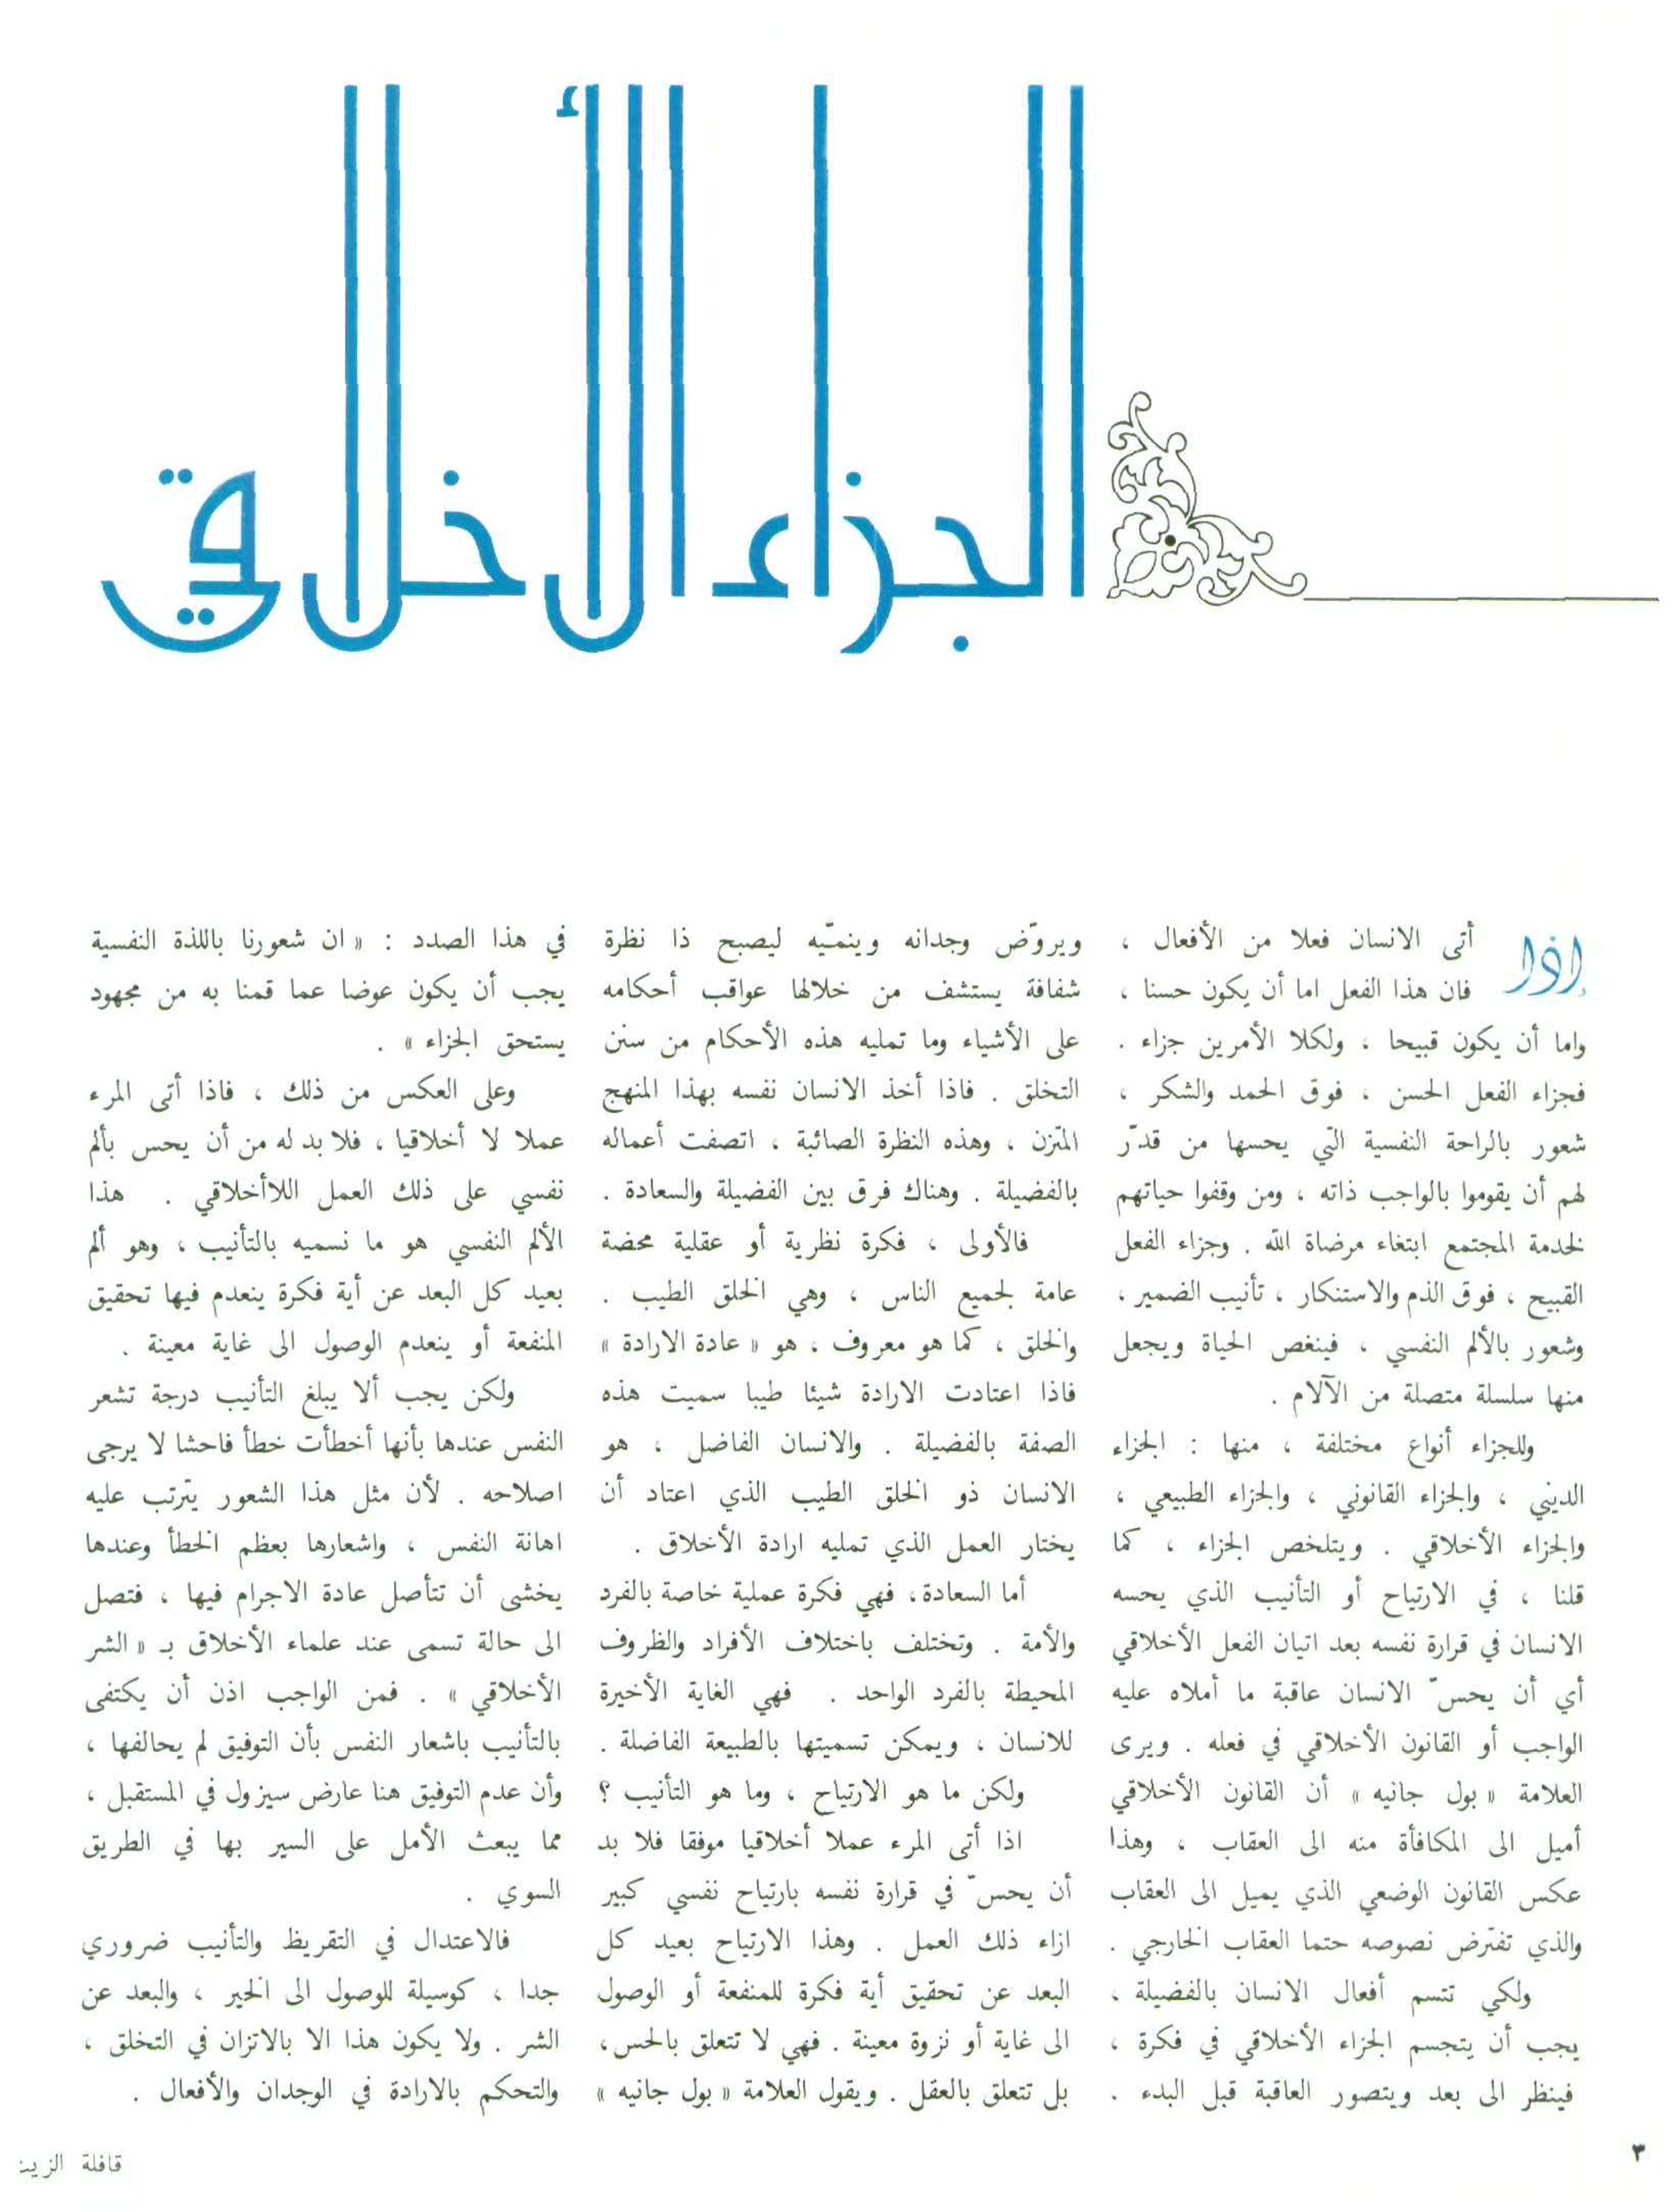 الجزاء الأخلاقي
إذا أتى الانسان فعلا من الأفعال ،
فان هذا الفعل اما أن يكون حسنا ،
واما أن يكون قبيحا ، ولكلا الأمرين جزاء .
فجزاء الفعل الحسن ، فوق الحمد والشكر ،
شعور بالراحة النفسية التي يحسها من قدّر
لهم أن يقوموا بالواجب ذاته ، ومن وقفوا حياتهم
لخدمة المجتمع ابتغاء مرضاة الله . وجزاء الفعل
القبيح ، فوق الذم والاستنكار ، تأنيب الضمير ،
وشعور بالألم النفسي ، فينغص الحياة ويجعل
منها سلسلة متصلة من الآلام .
وللجزاء أنواع مختلفة ، منها : الجزاء
الديني ، والجزاء القانوني ، والجزاء الطبيعي ،
والجزاء الأخلاقي . ويتلخص الجزاء ، كما
قلنا ، في الارتياح أو التأنيب الذي يحسه
الانسان في قرارة نفسه بعد اتيان الفعل الأخلاقي
أي أن يحسّ الانسان عاقبة ما أملاه عليه
الواجب أو القانون الأخلاقي في فعله . ويرى
العلامة « بول جانيه » أن القانون الأخلاقي
أميل الى المكافأة منه الى العقاب ، وهذا
عكس القانون الوضعي الذي يميل الى العقاب
والذي تفترض نصوصه حتما العقاب الخارجي .
ولكي تتسم أفعال الانسان بالفضيلة ،
يجب أن يتجسم الجزاء الأخلاقي في فكرة ،
فينظر الى بعد ويتصور العاقبة قبل البدء .
ويروّض وجدانه وينمّيه ليصبح ذا نظرة
شفافة يستشف من خلالها عواقب أحكامه
على الأشياء وما تمليه هذه الأحكام من سنن
التخلق . فاذا أخذ الانسان نفسه بهذا المنهج
المتزن ، وهذه النظرة الصائبة ، اتصفت أعماله
بالفضيلة . وهناك فرق بين الفضيلة والسعادة .
فالأولى ، فكرة نظرية أو عقلية محضة
عامة لجميع الناس ، وهي الخلق الطيب .
والخلق ، كما هو معروف ، هو « عادة الارادة »
فاذا اعتادت الارادة شيئا طيبا سميت هذه
الصفة بالفضيلة . والانسان الفاضل ، هو
الانسان ذو الخلق الطيب الذي اعتاد أن
يختار العمل الذي تمليه ارادة الأخلاق .
أما السعادة ، فهي فكرة عملية خاصة بالفرد
والأمة . وتختلف باختلاف الأفراد والظروف
المحيطة بالفرد الواحد . فهي الغاية الأخيرة
للانسان ، ويمكن تسميتها بالطبيعة الفاضلة .
ولكن ما هو الارتياح ، وما هو التأنيب ؟
اذا أتى المرء عملا أخلاقيا موفقا فلا بد
أن يحسّ في قرارة نفسه بارتياح نفسي كبير
ازاء ذلك العمل . وهذا الارتياح بعيد كل
البعد عن تحقيق أية فكرة للمنفعة أو الوصول
الى غاية أو نزوة معينة . فهي لا تتعلق بالحس ،
بل تتعلق بالعقل . ويقول العلامة « بول جانيه »
في هذا الصدد : « ان شعورنا باللذة النفسية
يجب أن يكون عوضا عما قمنا به من مجهود
يستحق الجزاء » .
وعلى العكس من ذلك ، فاذا أتى المرء
عملا لا أخلاقيا ، فلا بد له من أن يحس بألم
نفسي على ذلك العمل اللاأخلاقي . هذا
الألم النفسي هو ما نسميه بالتأنيب ، وهو ألم
بعيد كل البعد عن أية فكرة ينعدم فيها تحقيق
المنفعة أو ينعدم الوصول الى غاية معينة .
ولكن يجب ألا يبلغ التأنيب درجة تشعر
النفس عندها بأنها أخطأت خطأ فاحشا لا يرجى
اصلاحه . لأن مثل هذا الشعور يترتب عليه
اهانة النفس ، واشعارها بعظم الخطأ وعندها
يخشى أن تتأصل عادة الاجرام فيها ، فتصل
الى حالة تسمى عند علماء الأخلاق بـ « الشر
الأخلاقي » . فمن الواجب اذن أن يكتفى
بالتأنيب باشعار النفس بأن التوفيق لم يحالفها ،
وأن عدم التوفيق هنا عارض سيزول في المستقبل ،
مما يبعث الأمل على السير بها في الطريق
السوي .
فالاعتدال في التقريظ والتأنيب ضروري
جدا ، كوسيلة للوصول الى الخير ، والبعد عن
الشر . ولا يكون هذا الا بالاتزان في التخلق ،
والتحكم بالارادة في الوجدان والأفعال .
٣
قافلة الزيت